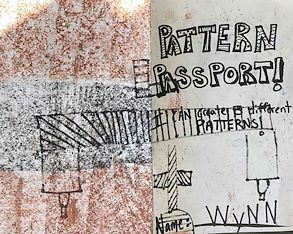 PATTERN
PASSPORT!
I CAN create 8 different
PATTERNS!
Name: WYNN